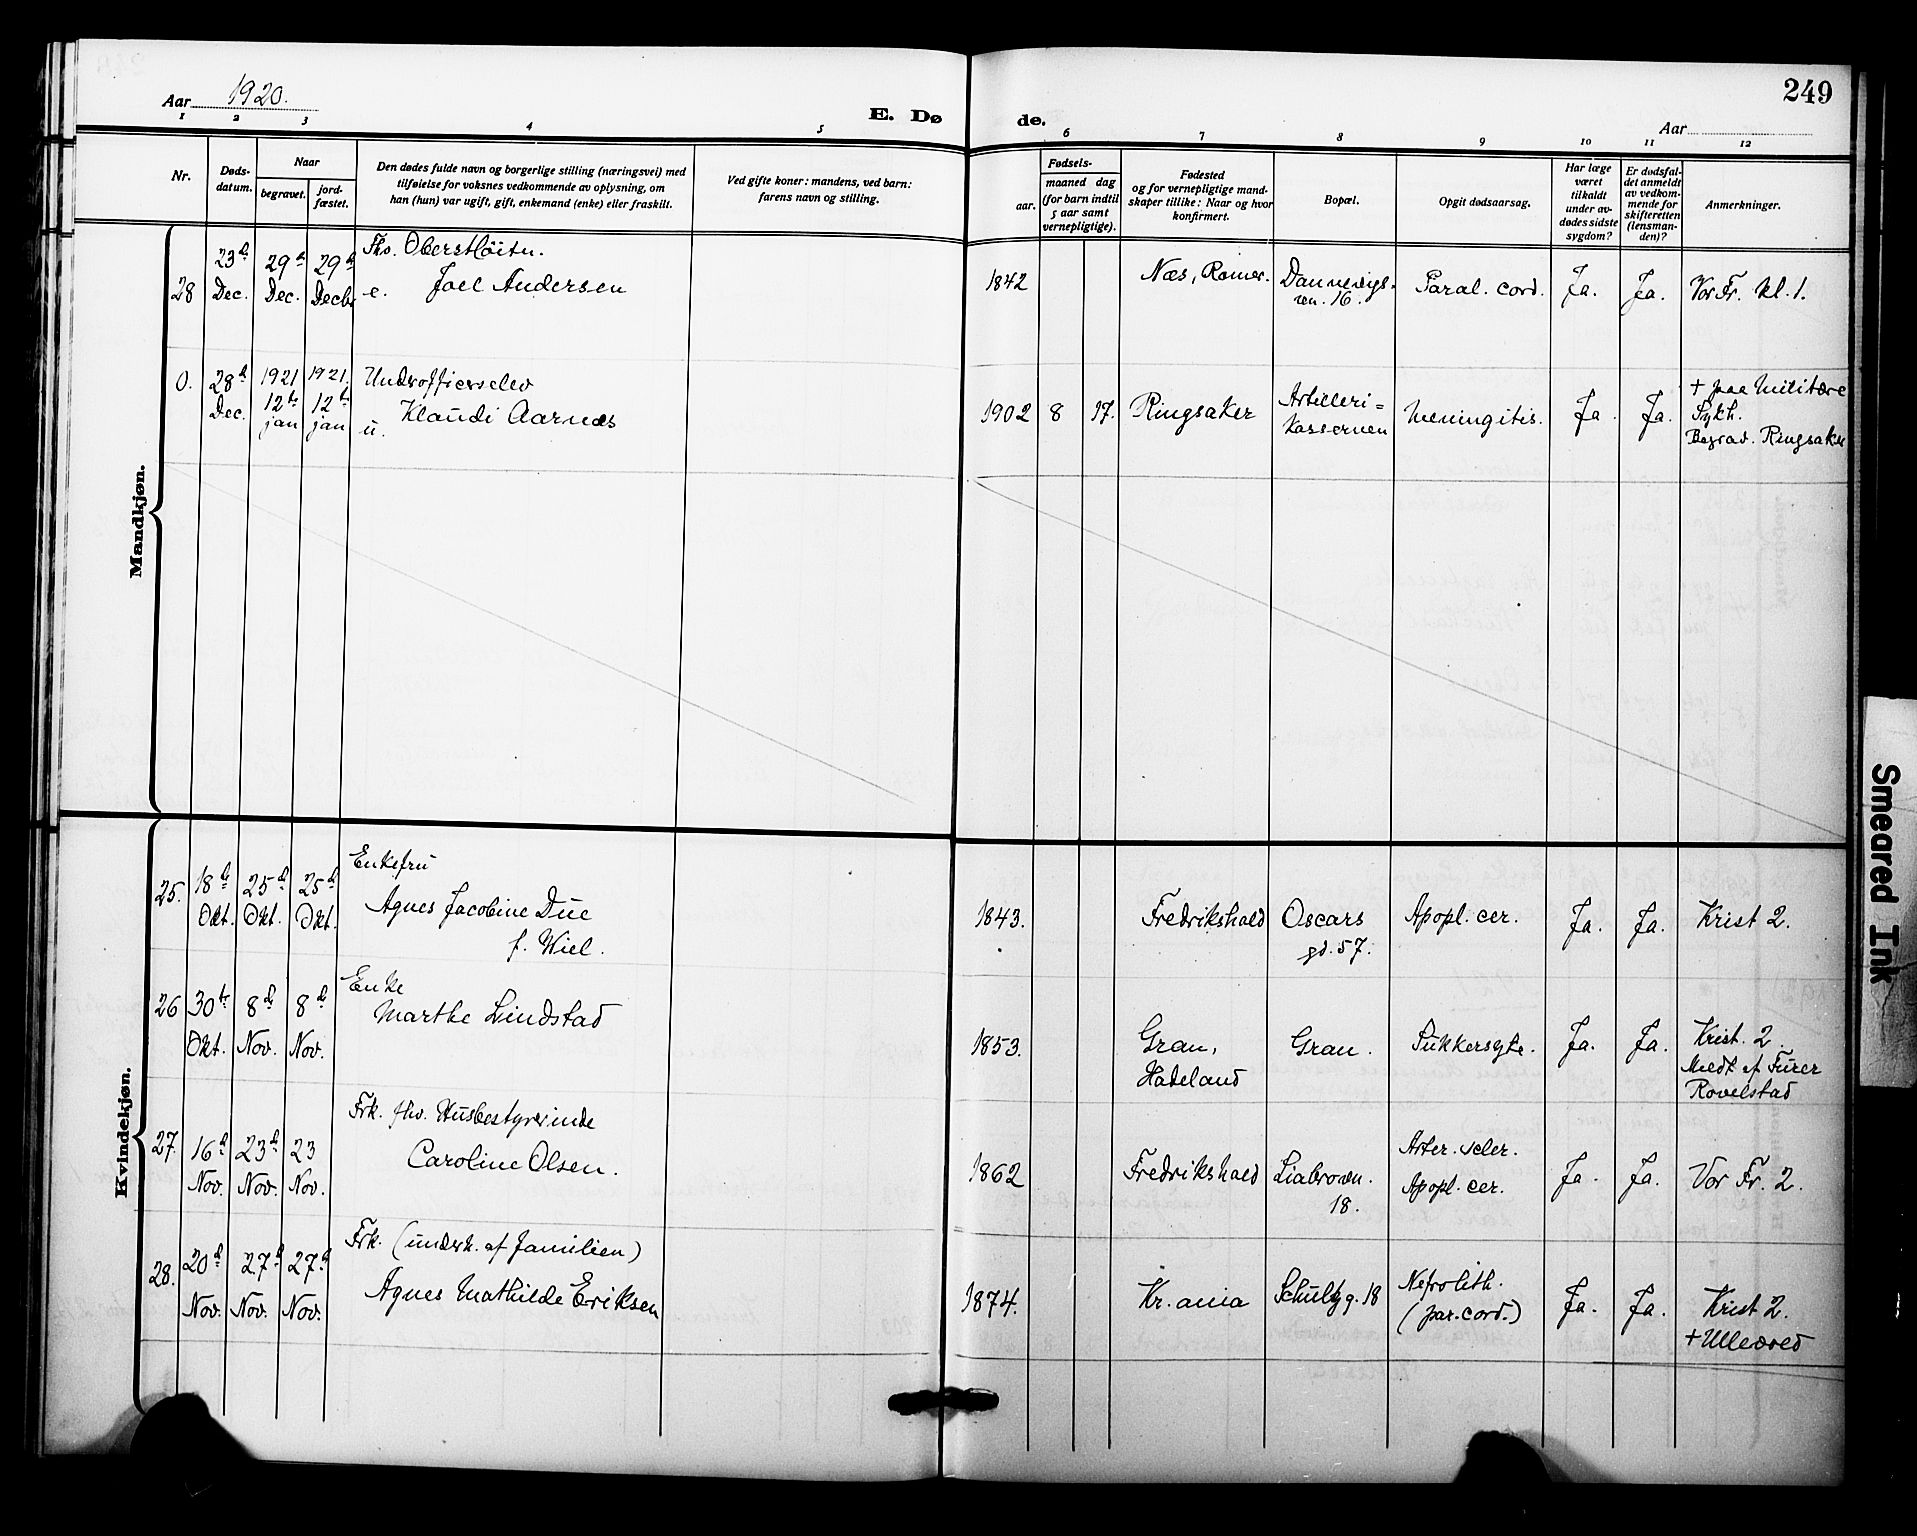 249
Aar 1920.
E. Dø
de.
Aar
1 2 3 4 5 6 7 8 9 10 11 12
Nr.
Døds-
datum.
Naar
begravet.
jord-
fæstet.
Den dødes fulde navn og borgerlige stilling (næringsvei) med
tilføielse for voksnes vedkommende av oplysning, om
han (hun) var ugift, gift, enkemand (enke) eller fraskilt.
Ved gifte koner: mandens, ved barn:
farens navn og stilling.
Fødsels-
aar.
maaned dag
(for barn indtil
5 aar samt
vernepligtige).
Fødested
og for vernepligtige mand-
skaper tillike: Naar og hvor
konfirmert.
Bopæl.
Opgit dødsaarsag.
Har læge
været
tilkaldt
under av-
dødes sidste
sygdom?
Er dødsfal-
det anmeldt
av vedkom-
mende for
skifteretten
(lensman-
den)?
Anmerkninger.
Mandkjøn.
28
23d
Dec.
29d
Dec.
29d
Decbr
Fhv. Oberstløitn.
e. Joel Andersen
1842
Næs, Romer.
Dannevigs-
vn. 16.
Paral. cord.
Ja.
Ja.
Vor Fr. kl. 1.
0.
28d
Dec.
1921
12te
jan
1921.
12te
jan
Underofficerselev
u. Klaudi Aarnæs
1902 8 17.
Ringsaker
Artilleri=
kassernen
Meningitis.
Ja.
Ja.
+ paa Militære
Sykh.
Begrav. Ringsaker
Kvindekjøn.
25.
18de
Okt.
25d
Okt.
25d
Okt.
Enkefru
Agnes Jacobine Due
f. Wiel.
1843.
Fredrikshald
Oscars
gd. 57.
Apopl. cer.
Ja.
Ja.
Krist 2.
26
30te
Okt.
8d
Nov.
8d
Nov.
Enke
Marthe Lindstad
1853.
Gran,
Hadeland
Gran.
Sukkersyke.
Ja.
Ja.
Krist. 2.
Medt. af Furer
Rovelstad
27.
16d
Nov.
23d
Nov.
23
Nov.
Frk. fhv. Husbestyrerinde
Caroline Olsen.
1862
Fredrikshald
Liabrovn.
18.
Arter. scler.
Apopl. cer.
Ja.
Ja.
Vor Fr. 2.
28.
20d
Nov.
27d
Nov.
27d
Nov.
Frk. (underh. af familien)
Agnes Mathilde Eriksen
1874.
Kr.ania
Schultzg. 18
Nefrolith.
(par. cord.)
Ja.
Ja.
Krist 2.
+ Ullevoed
Smeared Ink